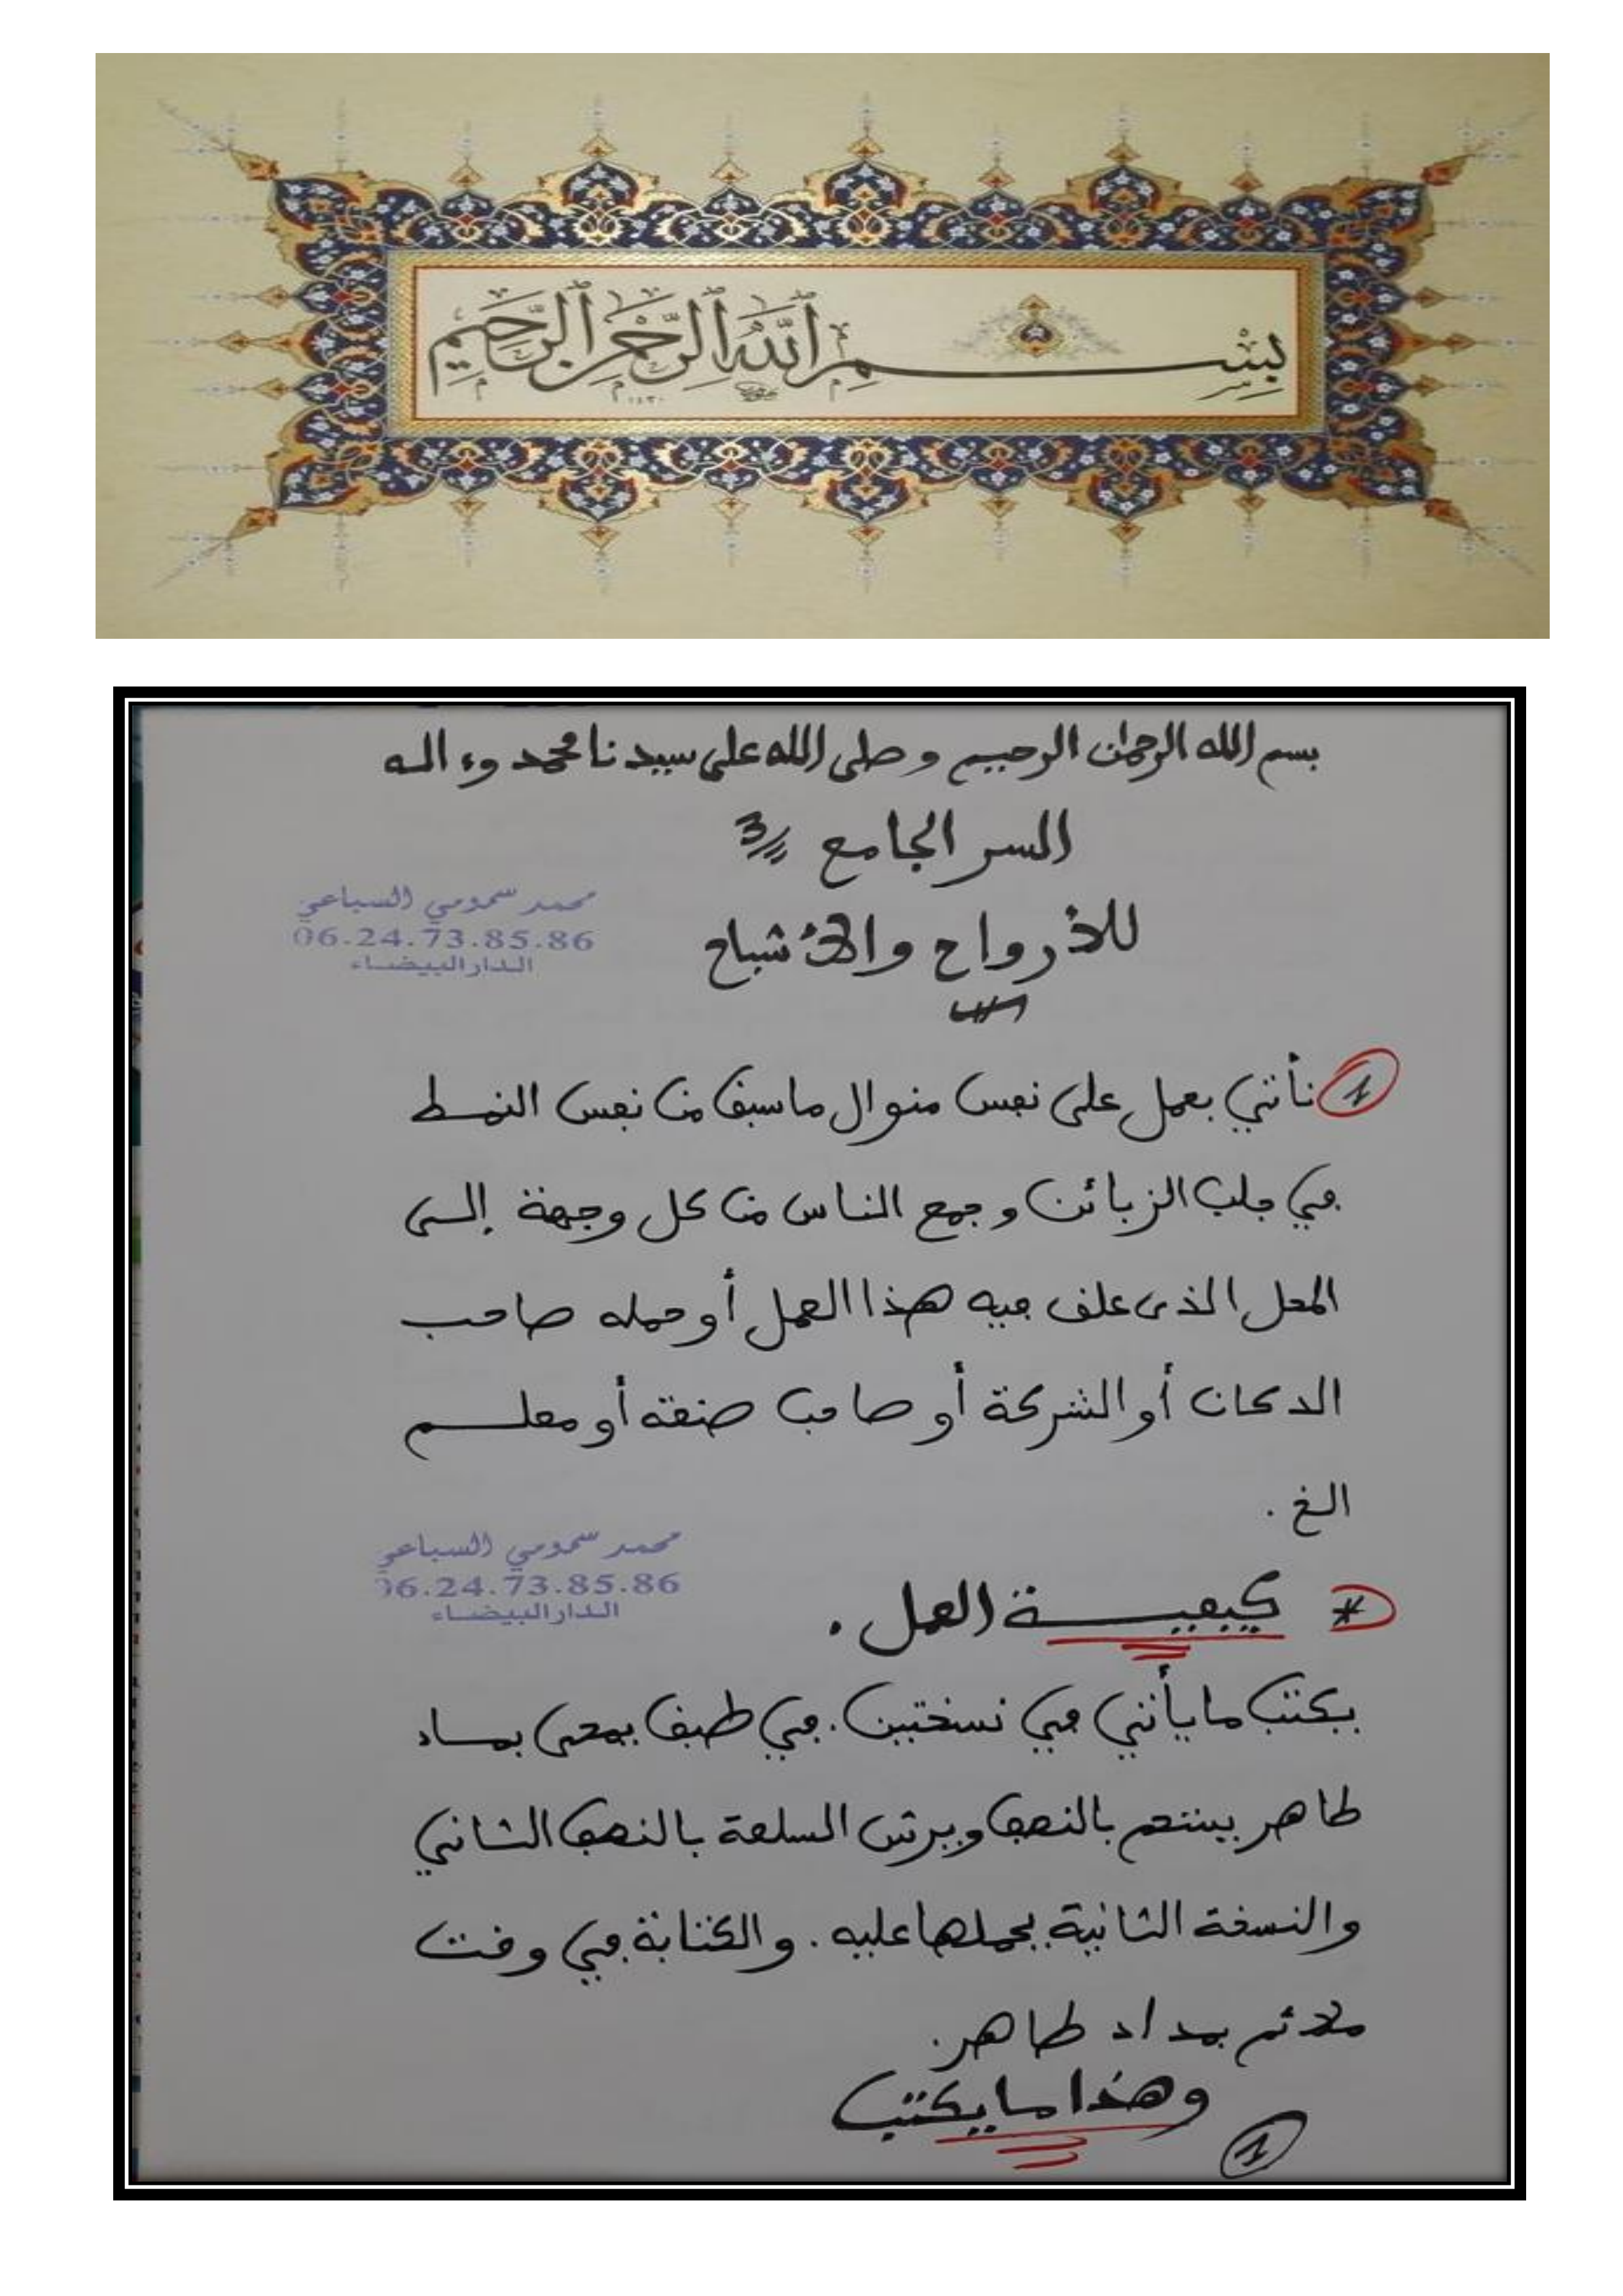 بِسْمِ ٱللَّهِ ٱلرَّحْمَٰنِ ٱلرَّحِيمِ
١٤٣٠
بسم الله الرحمان الرحيم و صلى الله على سيدنا محمد وءاله
السر الجامع 3
للأرواح والأشباح
محمد سمومي السباعي
06.24.73.85.86
الدار البيضاء
1 نأتي بعمل على نفس منوال ما سبق من نفس النمط
في جلب الزبائن و جمع الناس من كل وجهة إلى
المحل الذى علق فيه هذا العمل أو حمله صاحب
الدكان أو الشركة أو صاحب صنعة أو معلم
الخ .
محمد سمومي السباعي
06.24.73.85.86
الدار البيضاء
* كيفية العمل .
يكتب ما يأتي في نسختين . في طبق يمحى بماء
طاهر يستحم بالنصف ويرش السلعة بالنصف الثاني
والنسخة الثانية يحملها عليه . والكتابة في وقت
ملائم بمداد طاهر.
وهذا ما يكتب
1